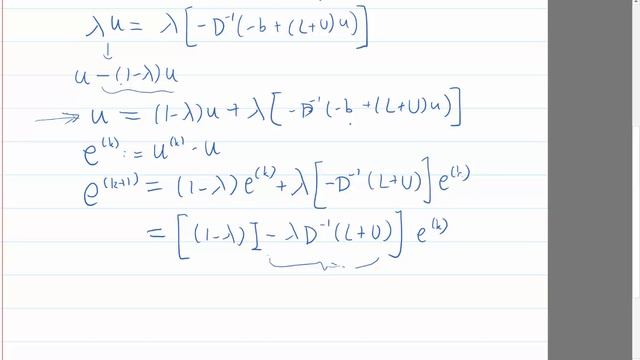 λu = λ[-D⁻¹(-b + (L+U)u)]
u - (1-λ)u
u = (1-λ)u + λ[-D⁻¹(-b + (L+U)u)]
e⁽ᵏ⁾ := u⁽ᵏ⁾ - u
e⁽ᵏ⁺¹⁾ = (1-λ)e⁽ᵏ⁾ + λ[-D⁻¹(L+U)]e⁽ᵏ⁾
= [(1-λ)I - λD⁻¹(L+U)] e⁽ᵏ⁾